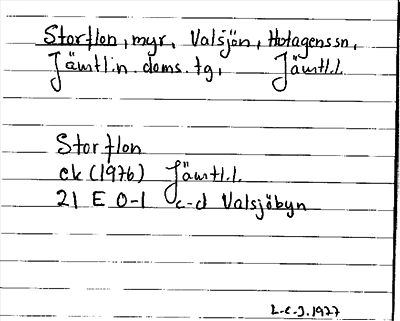 Storflon, myr, Valsjön, Hotagens sn,
Jämtl:n. doms. tg, Jämtl.l.
Storflon
ek (1976) Jämtl.l.
21 E 0-1 c-d Valsjöbyn
L-E.J. 1977